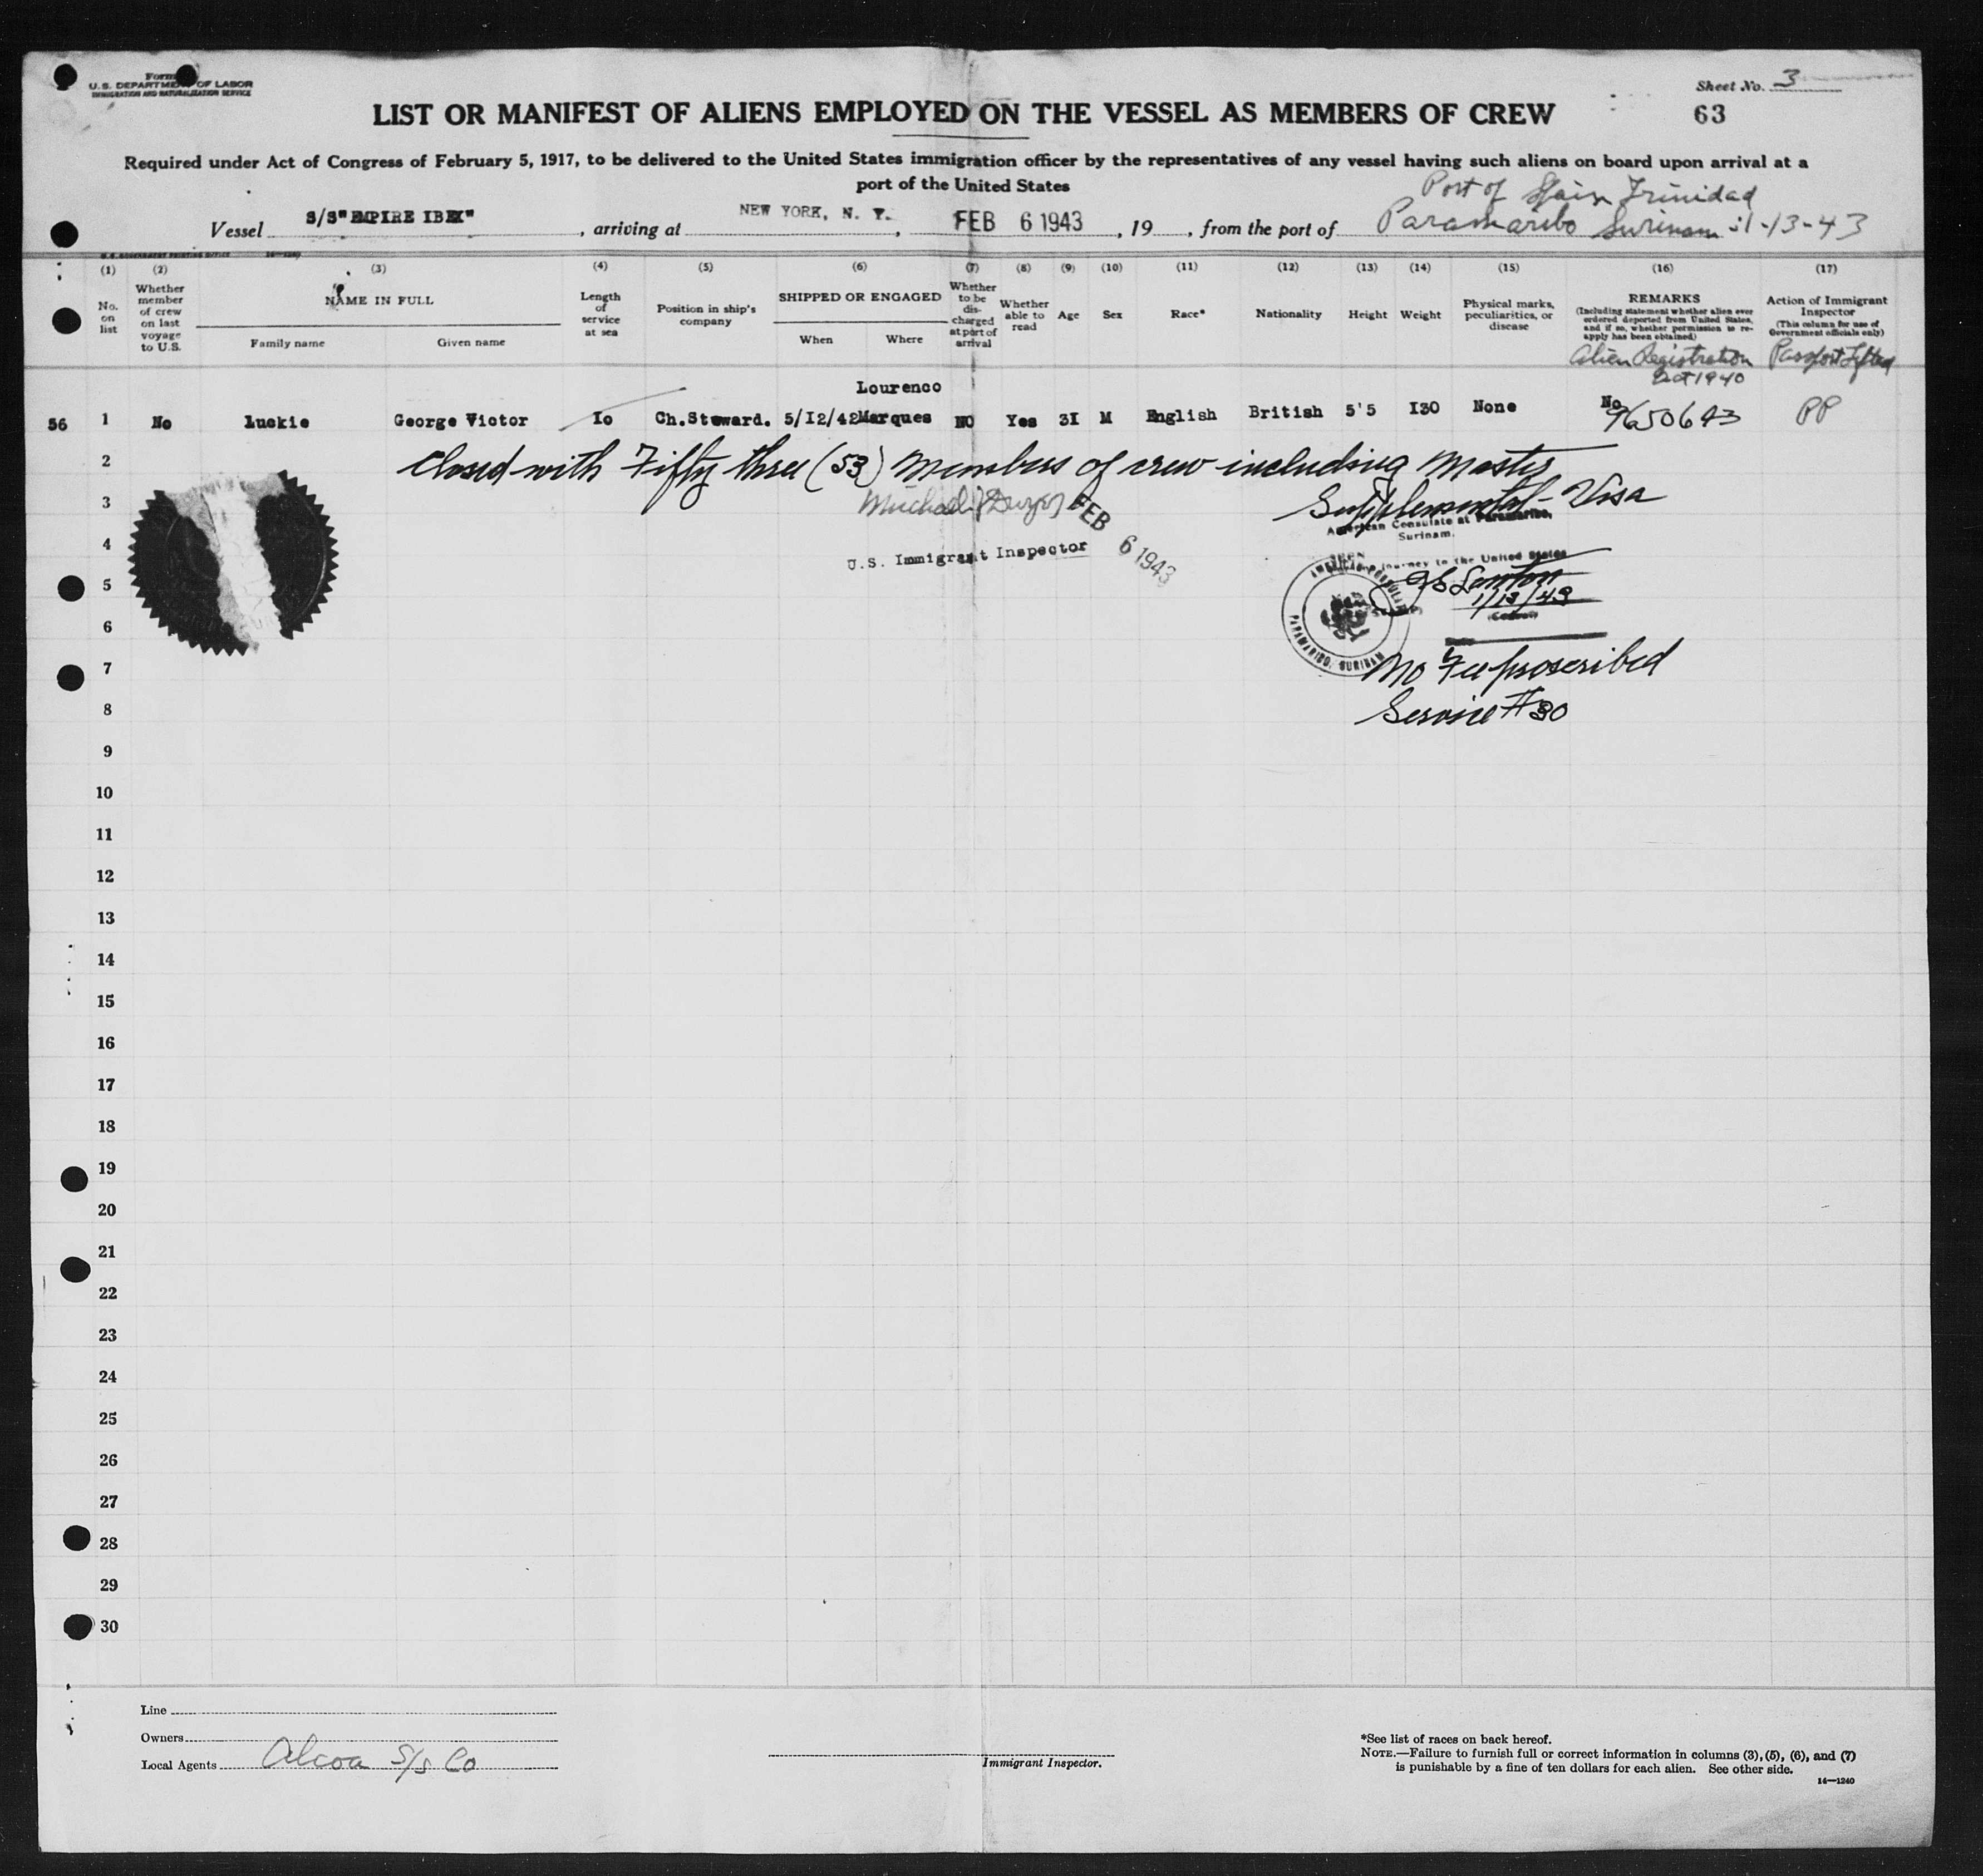 Form
U.S. DEPARTMENT OF LABOR
IMMIGRATION AND NATURALIZATION SERVICE
Sheet No. 3
63
LIST OR MANIFEST OF ALIENS EMPLOYED ON THE VESSEL AS MEMBERS OF CREW
Required under Act of Congress of February 5, 1917, to be delivered to the United States immigration officer by the representatives of any vessel having such aliens on board upon arrival at a
port of the United States
Port of Spain Trinidad
Vessel S/S"EMPIRE IBEX", arriving at NEW YORK, N. Y., FEB 6 1943, 19, from the port of Paramaribo Surinam 1-13-43
U.S. GOVERNMENT PRINTING OFFICE
(1) (2) (3) (4) (5) (6) (7) (8) (9) (10) (11) (12) (13) (14) (15) (16) (17)
No. on list
Whether member of crew on last voyage to U.S.
NAME IN FULL
Family name
Given name
Length of service at sea
Position in ship's company
SHIPPED OR ENGAGED
When
Where
Whether to be discharged at port of arrival
Whether able to read
Age
Sex
Race*
Nationality
Height
Weight
Physical marks, peculiarities, or disease
REMARKS
(Including statement whether alien ever ordered deported from United States, and if so, whether permission to reapply has been obtained)
Alien Registration
Act 1940
Action of Immigrant Inspector
(This column for use of Government officials only)
Passport Lifted
Lourenco
56 1 No Luckie George Victor Io Ch.Steward. 5/I2/42 Marques NO Yes 3I M English British 5'5 I30 None No 9650643 PP
2 Closed with Fifty three (53) Members of crew including Master
3 Supplemental Visa
American Consulate at Paramaribo,
Surinam.
FEB 6 1943
4 U.S. Immigrant Inspector
SEEN
journey to the United States
5
1/13/43
Consul
AMERICAN CONSULATE
PARAMARIBO, SURINAM
6
7 No Fee prescribed
8 Service #30
9
10
11
12
13
14
15
16
17
18
19
20
21
22
23
24
25
26
27
28
29
30
Line
Owners
Local Agents Alcoa S/S Co
Immigrant Inspector.
*See list of races on back hereof.
NOTE.—Failure to furnish full or correct information in columns (3), (5), (6), and (7)
is punishable by a fine of ten dollars for each alien. See other side.
14—1240